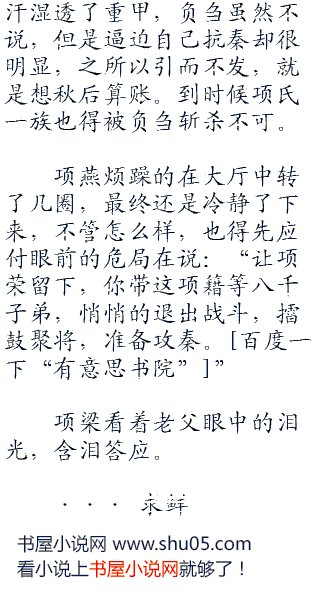 汗湿透了重甲，负刍虽然不
说，但是逼迫自己抗秦却很
明显，之所以引而不发，就
是想秋后算账。到时候项氏
一族也得被负刍斩杀不可。
项燕烦躁的在大厅中转
了几圈，最终还是冷静了下
来，不管怎么样，也得先应
付眼前的危局在说：“让项
荣留下，你带这项籍等八千
子弟，悄悄的退出战斗，擂
鼓聚将，准备攻秦。[百度一
下“有意思书院”]”
项梁看着老父眼中的泪
光，含泪答应。
··· 求鲜
书屋小说网 www.shu05.com
看小说上书屋小说网就够了！